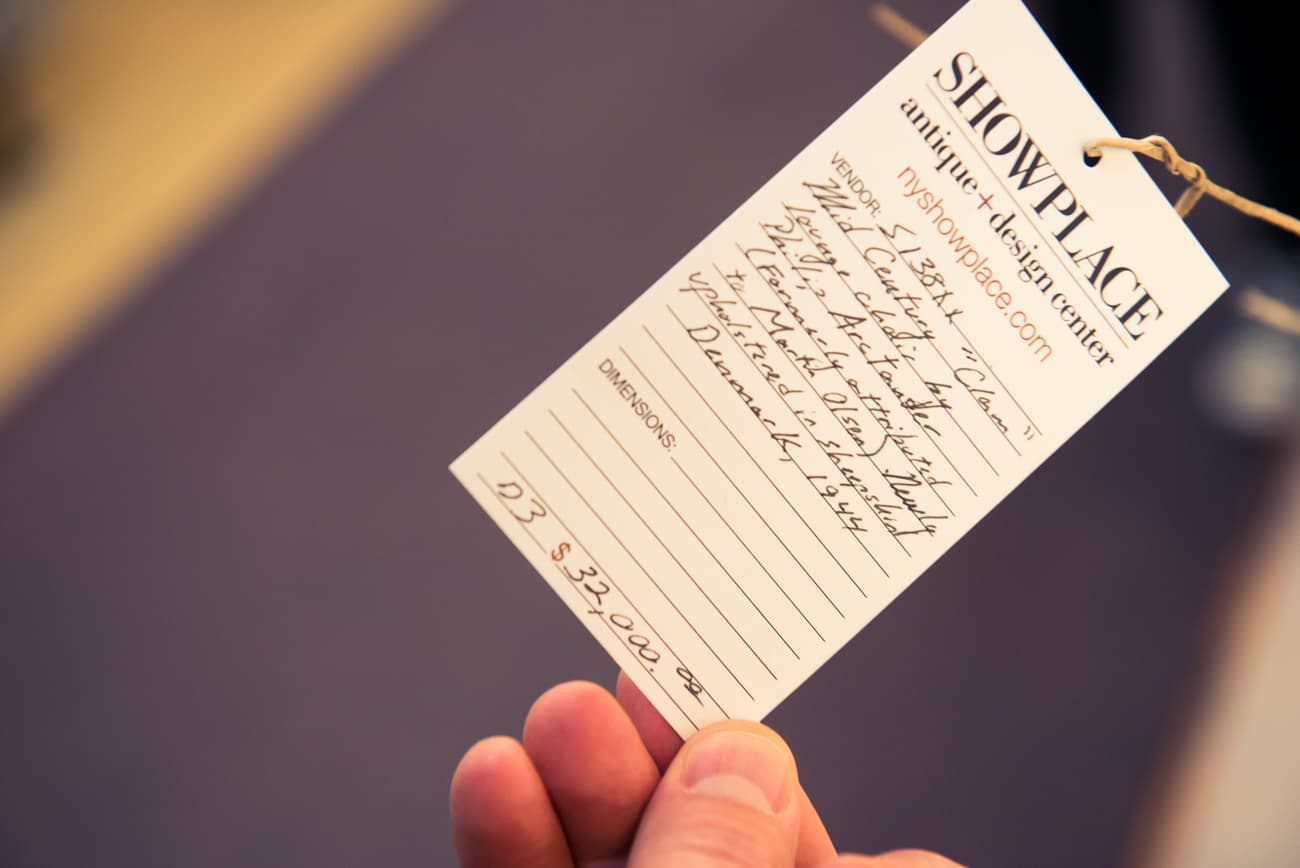 SHOWPLACE
antique+design center
nyshowplace.com
VENDOR: S138XX
Mid Century "Clam"
lounge chair by
Philip Arctander
(Formerly attributed
to Martin Olsen) Newly
upholstered in sheepskin
Denmark, 1944
DIMENSIONS:
D3 $32,000.00